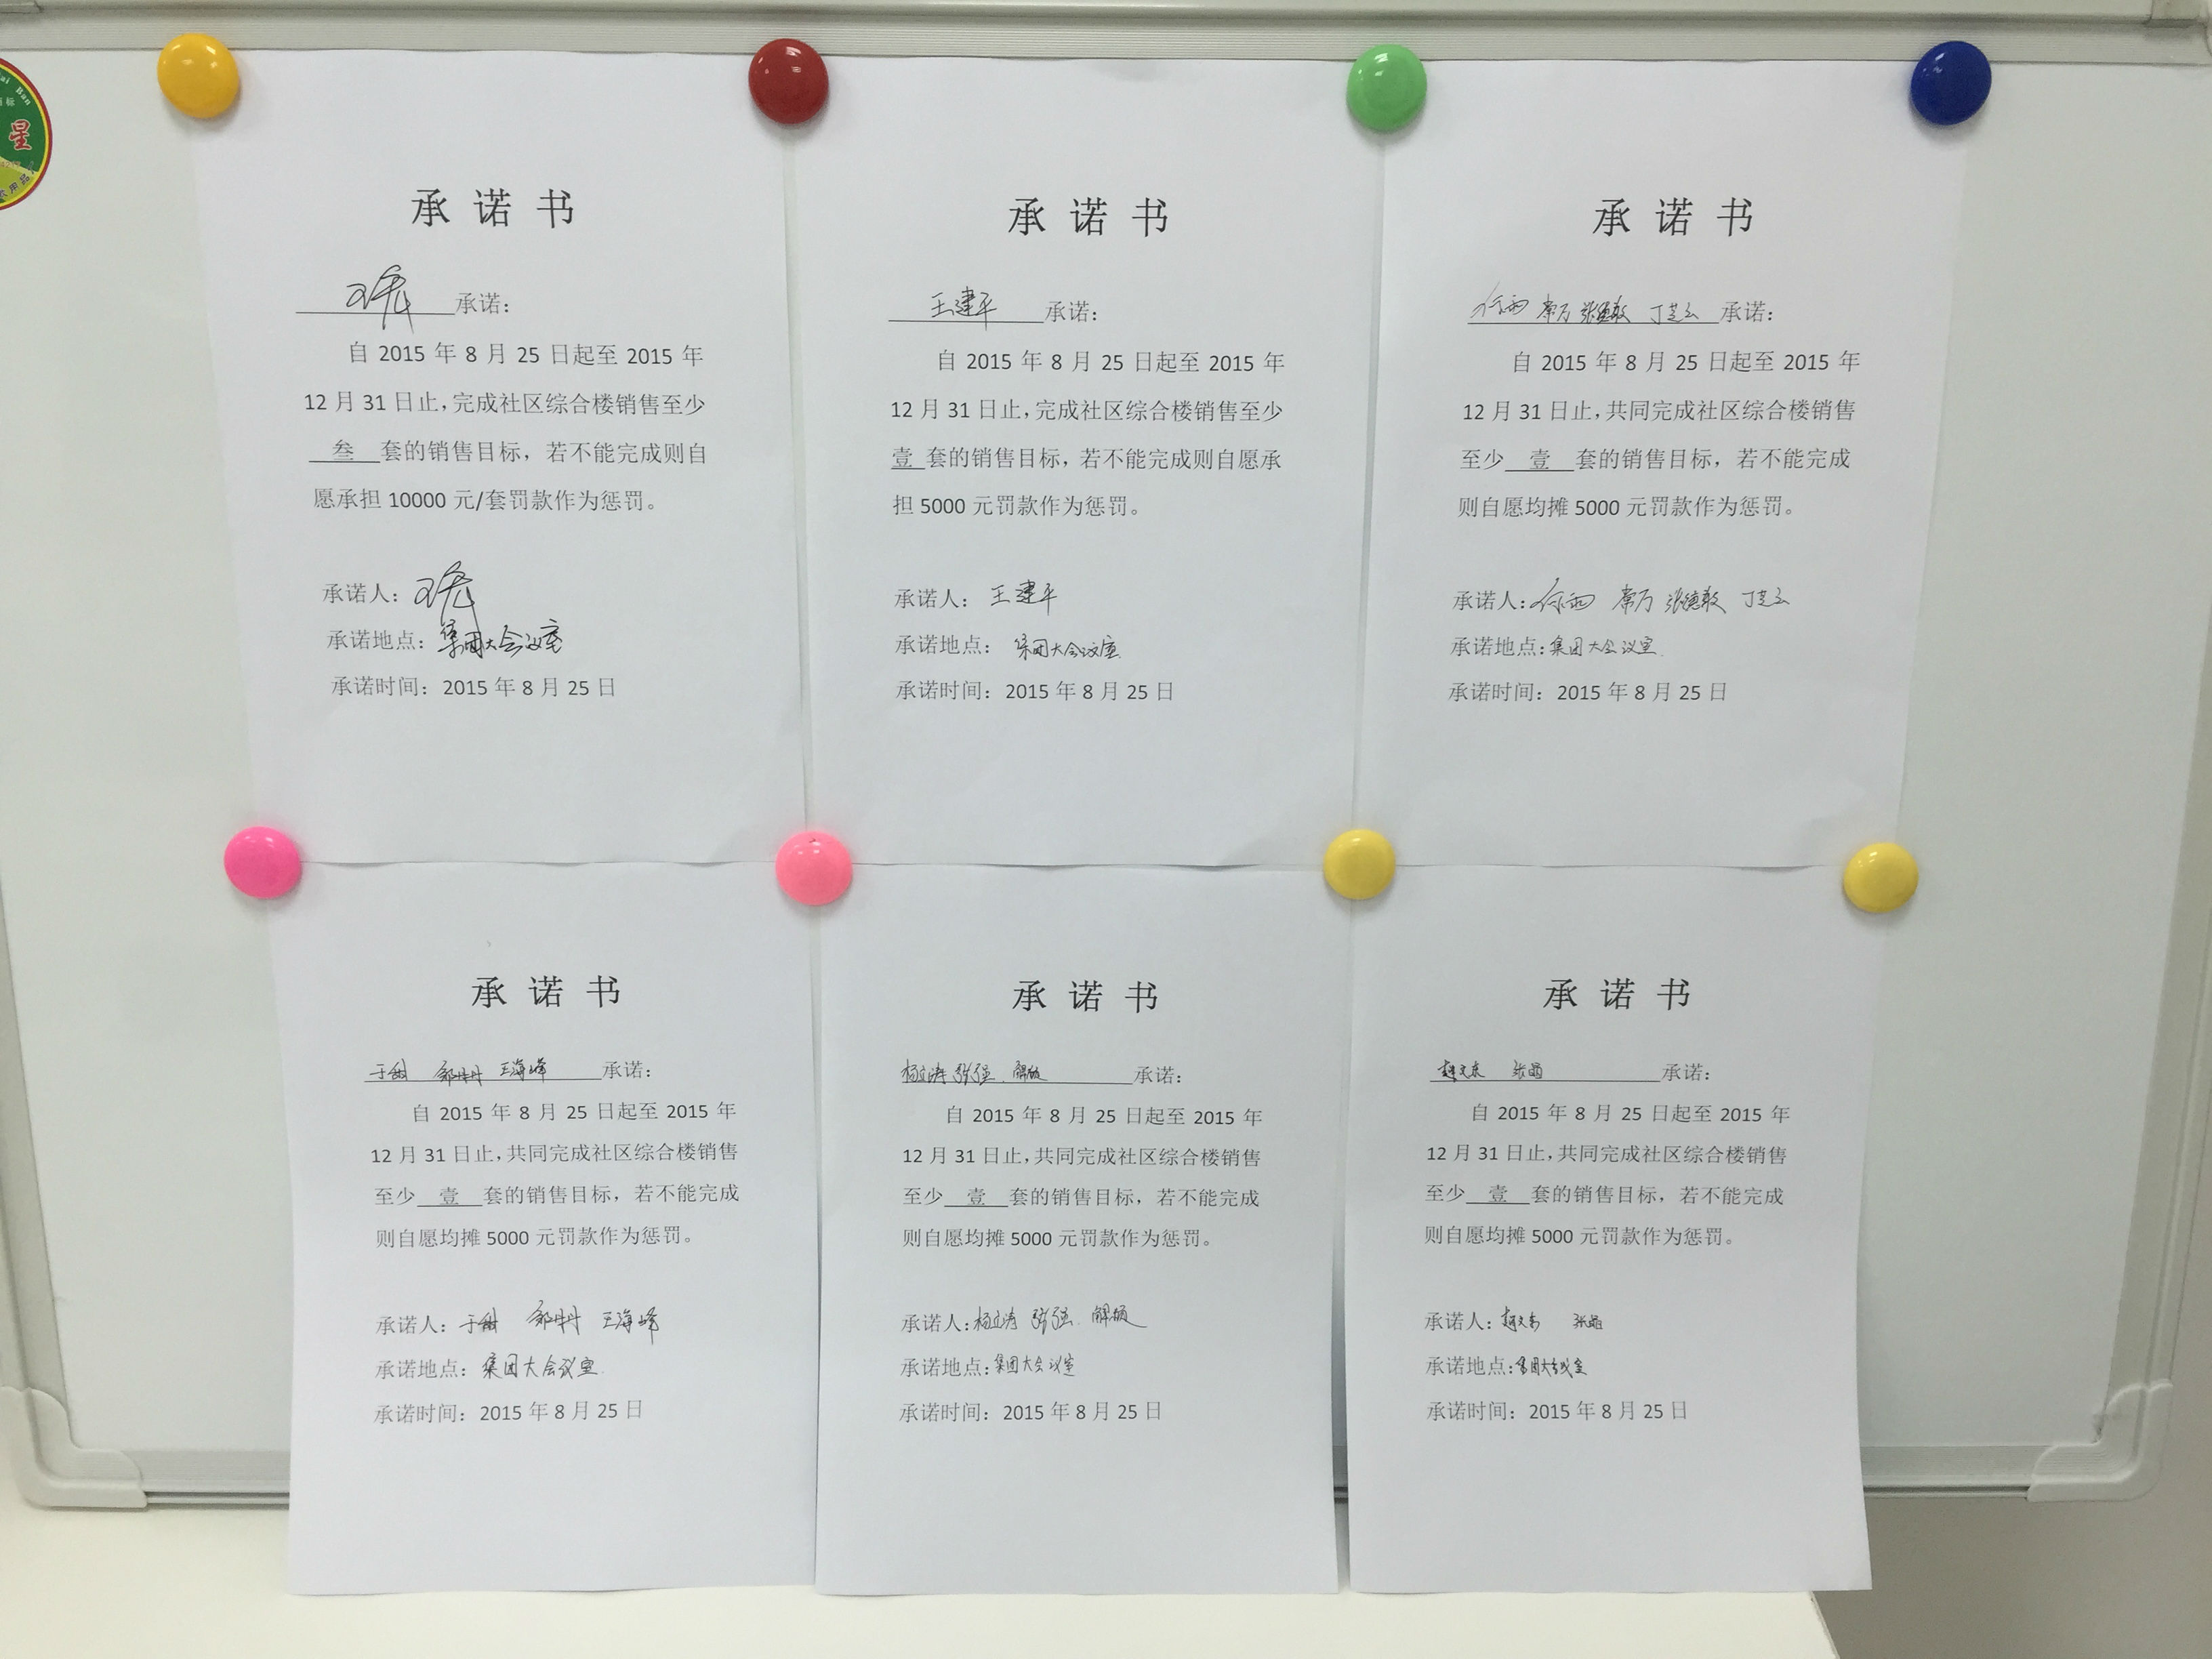 星
承诺书
承诺：
自 2015 年 8 月 25 日起至 2015 年
12 月 31 日止，完成社区综合楼销售至少
叁 套的销售目标，若不能完成则自
愿承担 10000 元/套罚款作为惩罚。
承诺人：
承诺地点：集团大会议室
承诺时间：2015 年 8 月 25 日
承诺书
王建平 承诺：
自 2015 年 8 月 25 日起至 2015 年
12 月 31 日止，完成社区综合楼销售至少
壹 套的销售目标，若不能完成则自愿承
担 5000 元罚款作为惩罚。
承诺人：王建平
承诺地点：集团大会议室
承诺时间：2015 年 8 月 25 日
承诺书
承诺：
自 2015 年 8 月 25 日起至 2015 年
12 月 31 日止，共同完成社区综合楼销售
至少 壹 套的销售目标，若不能完成
则自愿均摊 5000 元罚款作为惩罚。
承诺人：
承诺地点：集团大会议室
承诺时间：2015 年 8 月 25 日
承诺书
王海峰 承诺：
自 2015 年 8 月 25 日起至 2015 年
12 月 31 日止，共同完成社区综合楼销售
至少 壹 套的销售目标，若不能完成
则自愿均摊 5000 元罚款作为惩罚。
承诺人：王海峰
承诺地点：集团大会议室
承诺时间：2015 年 8 月 25 日
承诺书
张强 承诺：
自 2015 年 8 月 25 日起至 2015 年
12 月 31 日止，共同完成社区综合楼销售
至少 壹 套的销售目标，若不能完成
则自愿均摊 5000 元罚款作为惩罚。
承诺人：张强
承诺地点：集团大会议室
承诺时间：2015 年 8 月 25 日
承诺书
承诺：
自 2015 年 8 月 25 日起至 2015 年
12 月 31 日止，共同完成社区综合楼销售
至少 壹 套的销售目标，若不能完成
则自愿均摊 5000 元罚款作为惩罚。
承诺人：
承诺地点：集团大会议室
承诺时间：2015 年 8 月 25 日